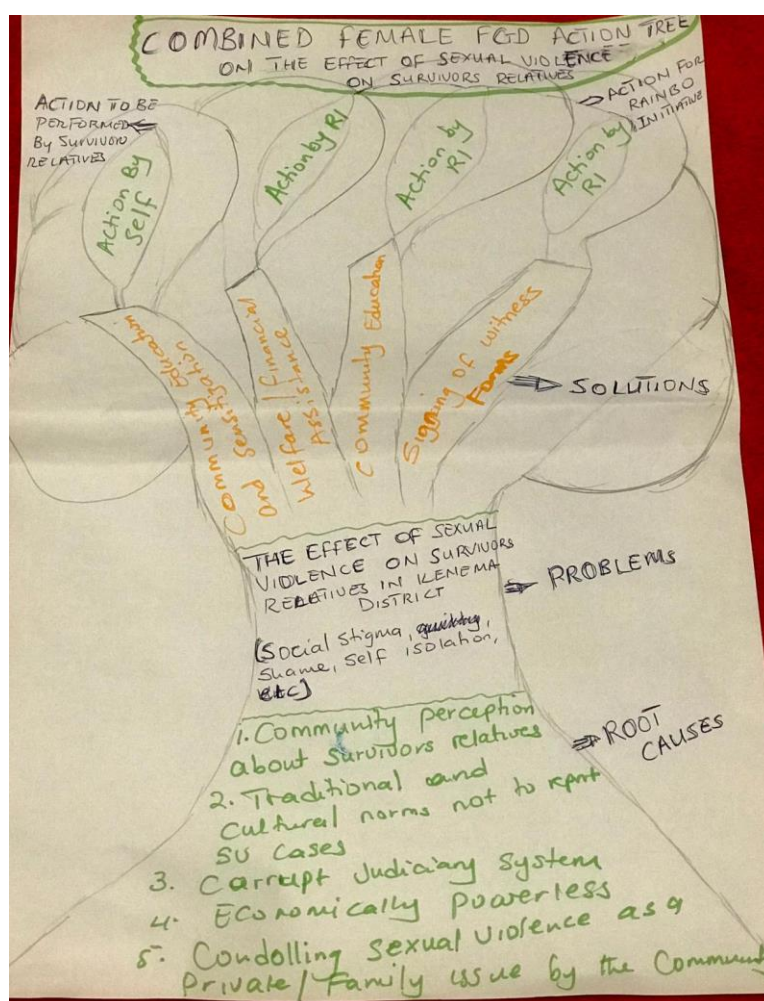 COMBINED FEMALE FGD ACTION TREE
ON THE EFFECT OF SEXUAL VIOLENCE
ON SURVIVORS RELATIVES
ACTION TO BE
PERFORMED
By SURVIVOR
RELATIVES
ACTION FOR
RAINBO
INITIATIVE
Action By
Self
Action by RI
Action by
RI
Action by
RI
Community Education
and Sensitization
Welfare/Financial
Assistance
Community Education
Signing of witness
Forms
SOLUTIONS
THE EFFECT OF SEXUAL
VIOLENCE ON SURVIVORS
RELATIVES IN KENEMA
DISTRICT
(Social Stigma,
Shame, Self isolation,
etc)
PROBLEMS
1. Community perception
about Survivors relatives
2. Traditional and
Cultural norms not to report
SV cases
3. Carrupt Judiciary System
4. Economically powerless
5. Condolling Sexual Violence as a
Private/Family issue by the Community
ROOT
CAUSES